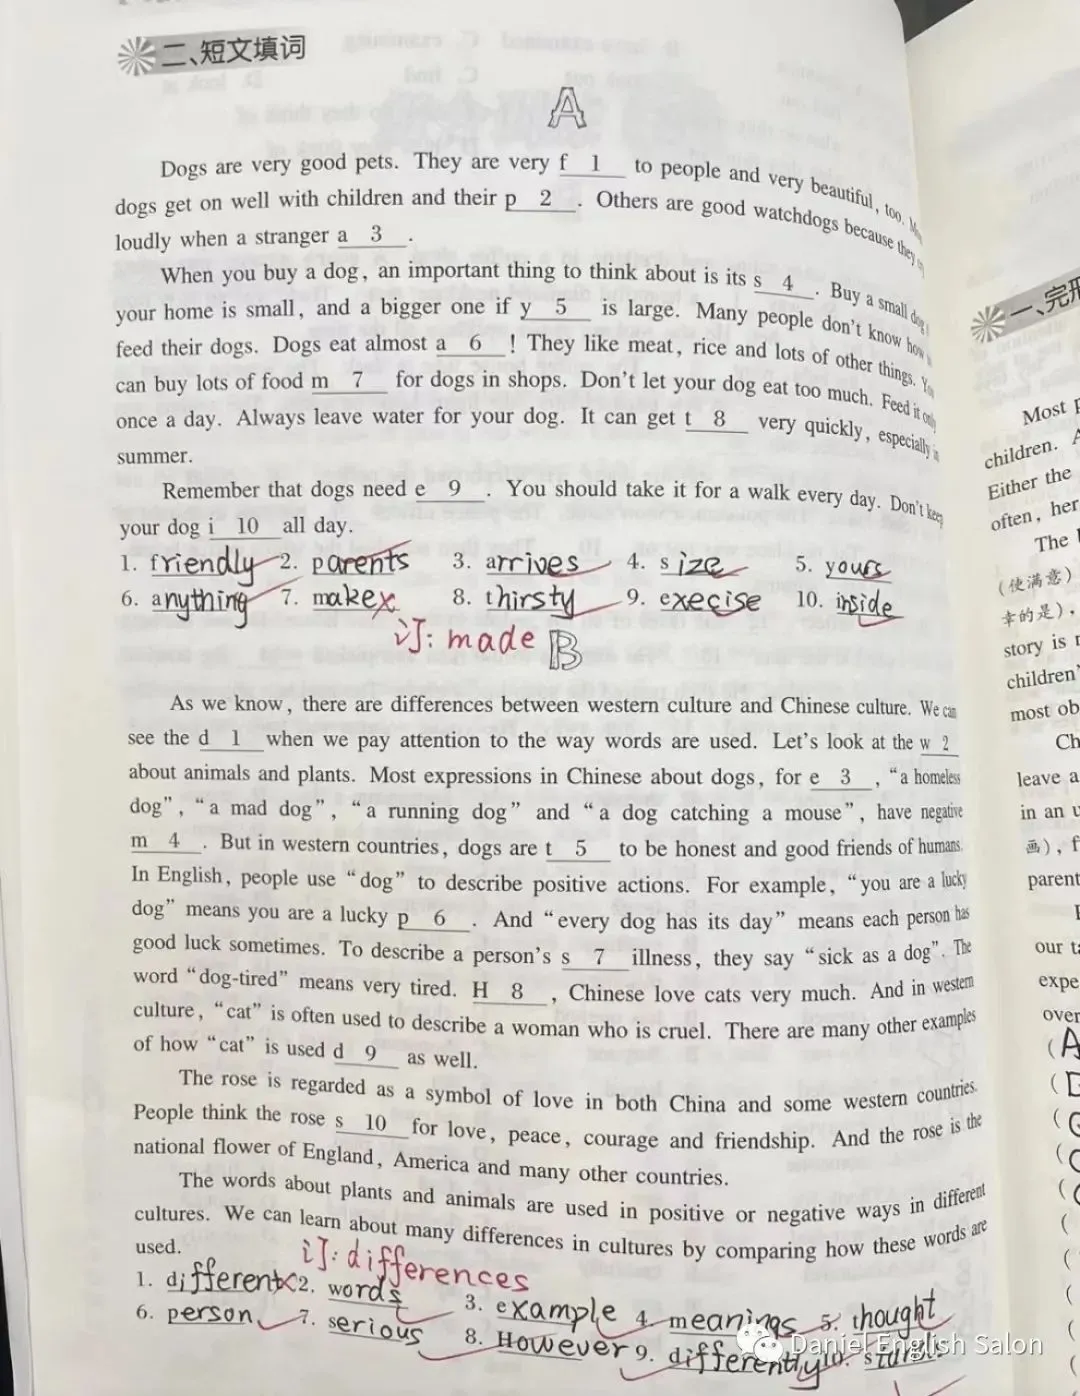 二、短文填词
A
Dogs are very good pets. They are very f 1 to people and very beautiful, too.
dogs get on well with children and their p 2 . Others are good watchdogs because they
loudly when a stranger a 3 .
When you buy a dog, an important thing to think about is its s 4 . Buy a small dog
your home is small, and a bigger one if y 5 is large. Many people don't know how
feed their dogs. Dogs eat almost a 6 ! They like meat, rice and lots of other things. You
can buy lots of food m 7 for dogs in shops. Don't let your dog eat too much. Feed it only
once a day. Always leave water for your dog. It can get t 8 very quickly, especially in
summer.
Remember that dogs need e 9 . You should take it for a walk every day. Don't keep
your dog i 10 all day.
1. friendly 2. parents 3. arrives 4. size 5. yours
6. anything 7. make 8. thirsty 9. execise 10. inside
订: made
B
As we know, there are differences between western culture and Chinese culture. We can
see the d 1 when we pay attention to the way words are used. Let's look at the w 2
about animals and plants. Most expressions in Chinese about dogs, for e 3 , "a homeless
dog", "a mad dog", "a running dog" and "a dog catching a mouse", have negative
m 4 . But in western countries, dogs are t 5 to be honest and good friends of humans.
In English, people use "dog" to describe positive actions. For example, "you are a lucky
dog" means you are a lucky p 6 . And "every dog has its day" means each person has
good luck sometimes. To describe a person's s 7 illness, they say "sick as a dog". The
word "dog-tired" means very tired. H 8 , Chinese love cats very much. And in western
culture, "cat" is often used to describe a woman who is cruel. There are many other examples
of how "cat" is used d 9 as well.
The rose is regarded as a symbol of love in both China and some western countries.
People think the rose s 10 for love, peace, courage and friendship. And the rose is the
national flower of England, America and many other countries.
The words about plants and animals are used in positive or negative ways in different
cultures. We can learn about many differences in cultures by comparing how these words are
used.
订: differences
1. different 2. words 3. example 4. meanings 5. thought
6. person 7. serious 8. However 9. differently 10.
Daniel English Salon
一、完形
Most
children.
Either the
often, her
The
(使满意)
幸的是),
story is
children'
most ob
Ch
leave a
in an
画), f
parent
our ta
expe
over